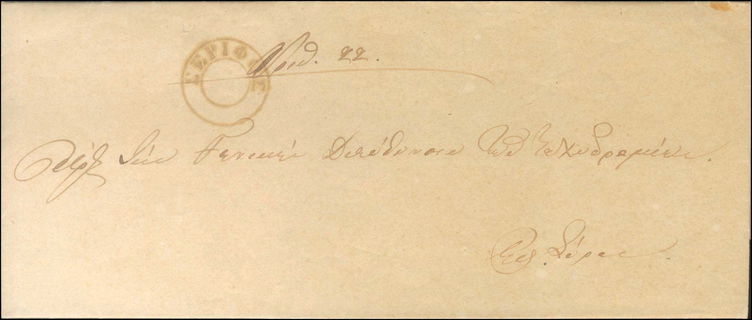 ΣΕΡΙΦΟΣ
Αριθ. 22.
Πρὸς τὴν Γενικὴν Διεύθυνσιν τῶν Ταχυδρομείων.
Εἰς